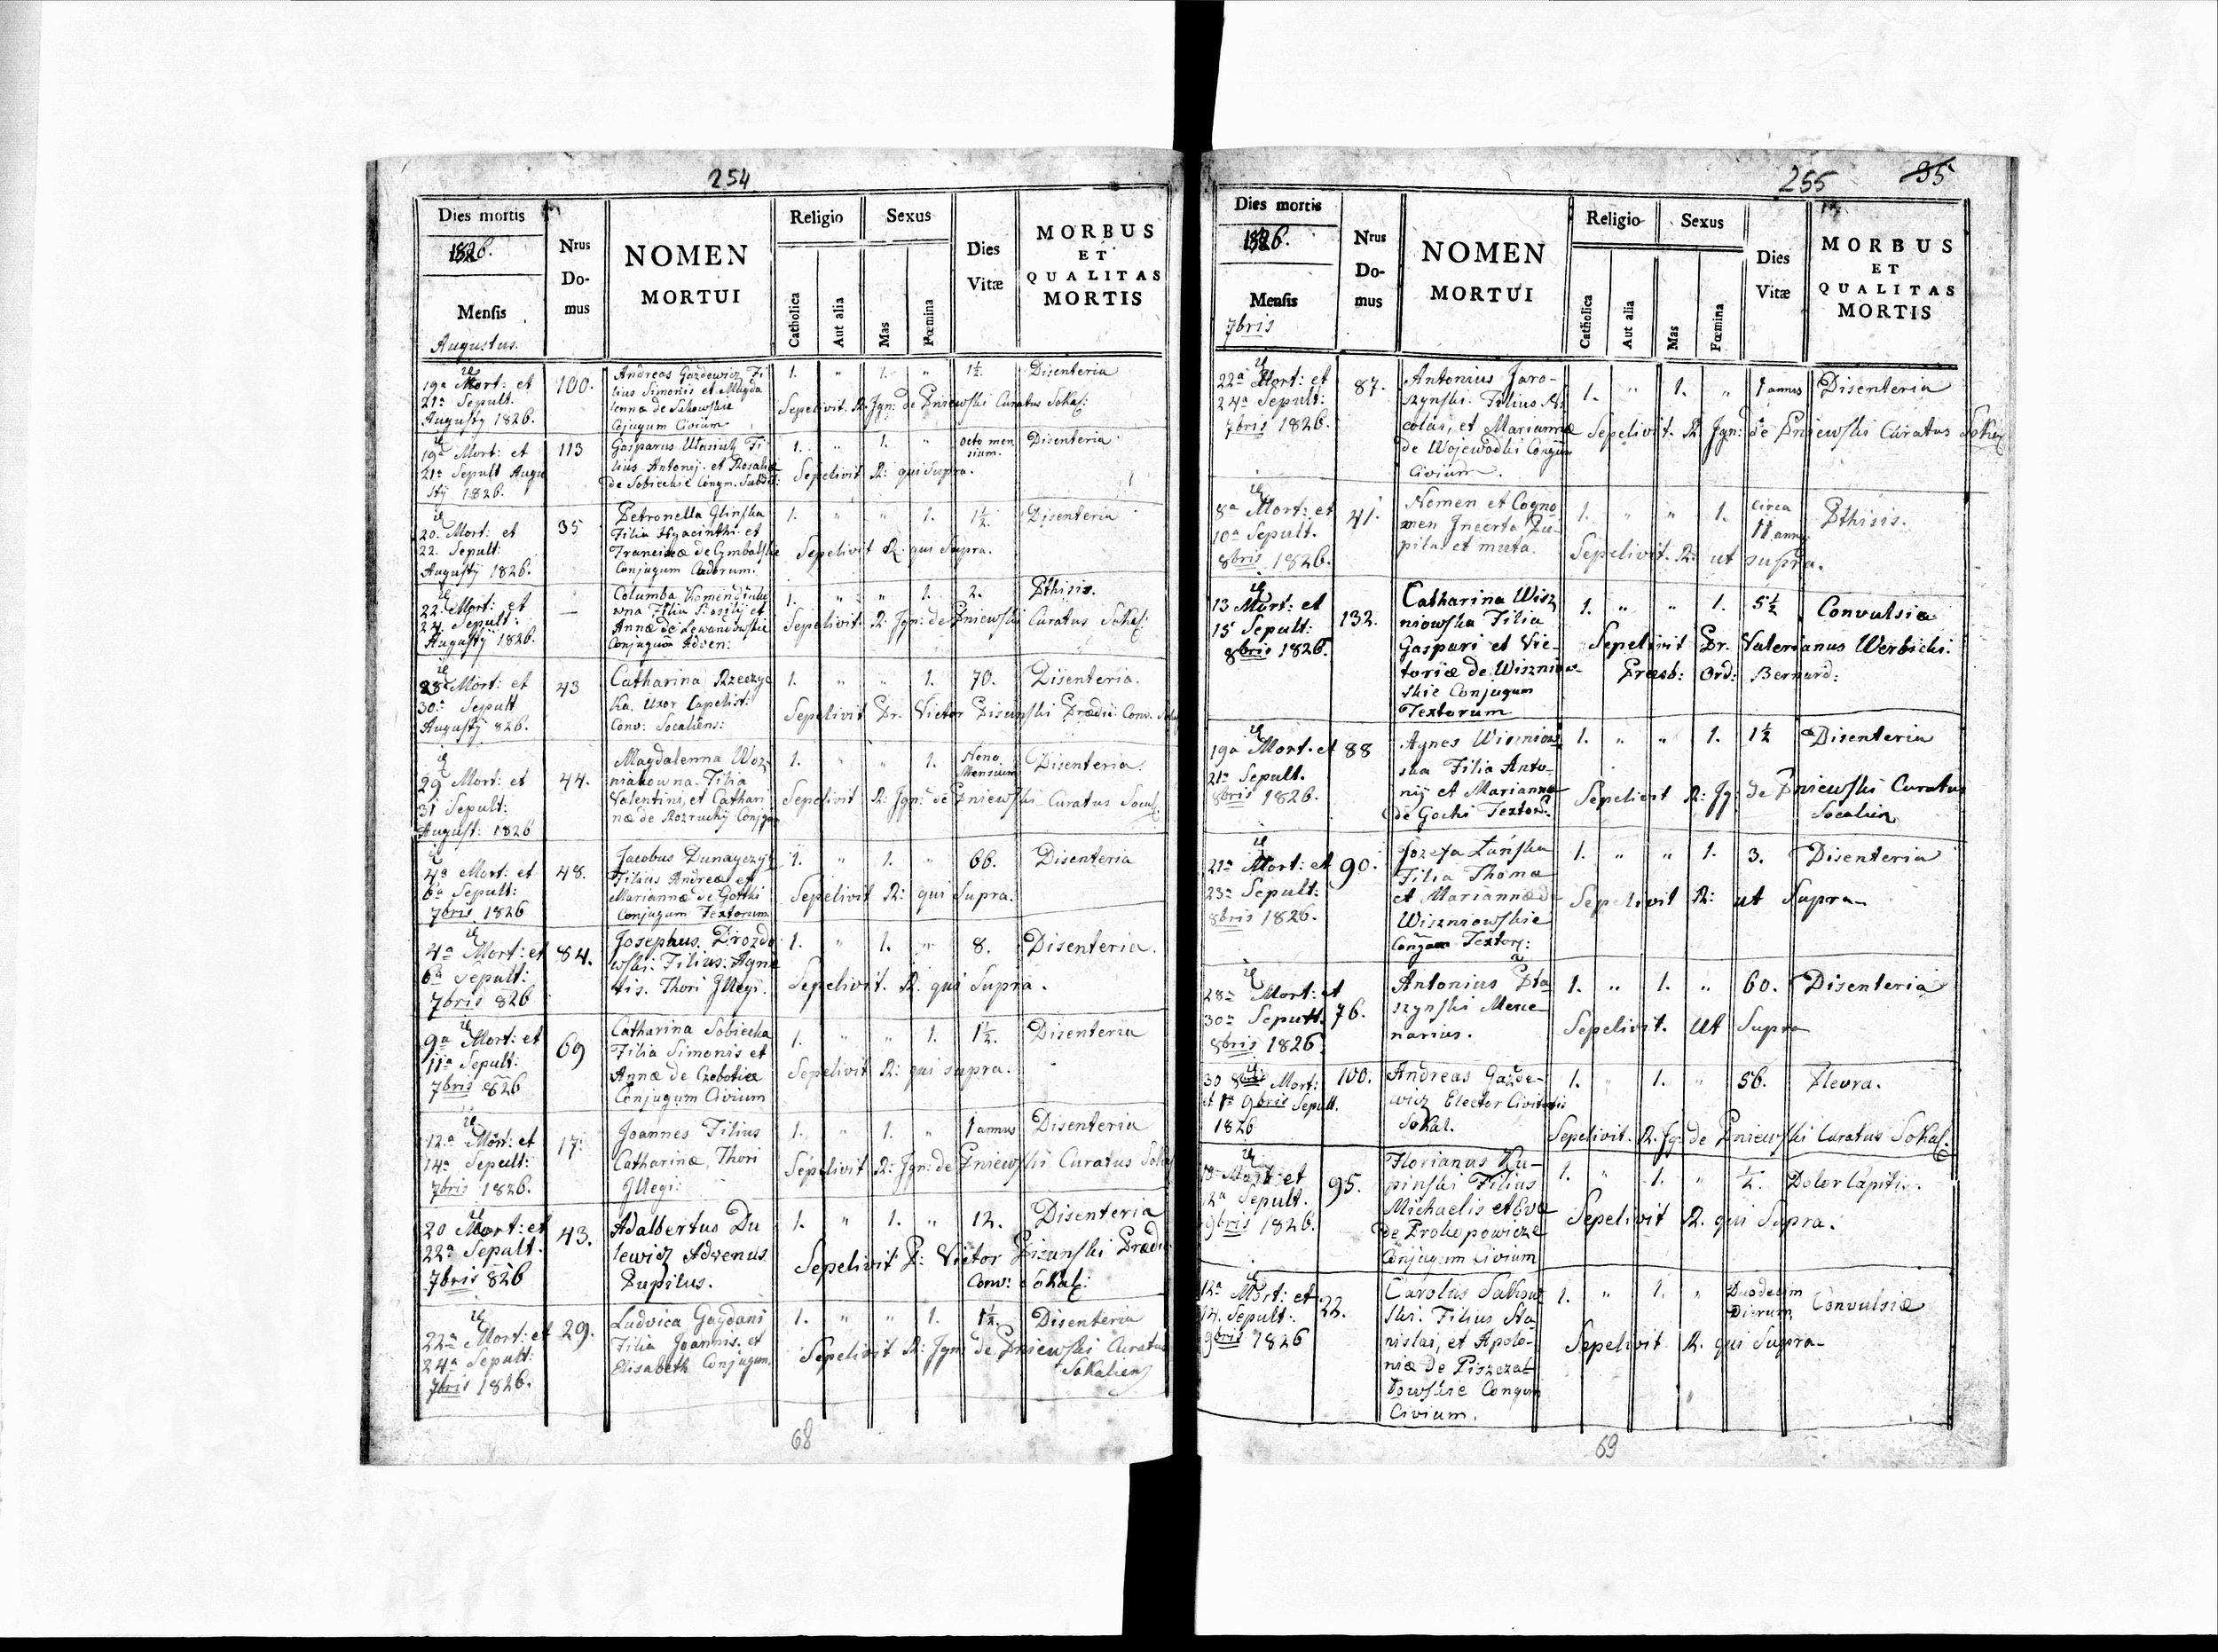 254
Dies mortis
1826.
Mensis
Augustus.
Nrus
Do-
mus
NOMEN
MORTUI
Religio
Catholica
Aut alia
Sexus
Mas
Fœmina
Dies
Vitæ
MORBUS
ET
QUALITAS
MORTIS
19a Mort: et
21a Sepult.
Augusty 1826.
100.
Andreas Gazdewicz Fi-
lius Simonis et Magda
lennæ de Sakowskie
Cojugum Civium
1. " 1. " 1½ Disenteria
Sepelivit R. Jgn: de Pniewski Curatus Sokal:
19a Mort: et
21a Sepult Augu
sty 1826.
113
Gasparus Fi-
lius Antonij et Rosaliæ
de Sobieckie Congm.
1. " 1. " Octo men
sium.
Disenteria
Sepelivit R: qui Supra.
20. Mort: et
22. Sepult:
Augusty 1826.
35
Petronella Glinska
Filia Hyacinthi et
Franciscæ de Cymbalskie
Conjugum
1. " " 1. 1½. Disenteria
Sepelivit R. qui Supra.
22. Mort: et
24. Sepult:
Augusty 1826.
—
Columba
wna Filia et
Annæ de Lewandowskie
Conjugum Adven:
1. " " 1. 2. Pthisis.
Sepelivit R. Jgn: de Pniewski Curatus Sokal:
28 Mort: et
30a Sepult
Augusty 826.
43
Catharina Rzeczyc
ka. Uxor Capelist:
Conv: Socaliens:
1. " " 1. 70. Disenteria.
Sepelivit Pr. Victor Pisanski Prædi: Conv.
29 Mort: et
31 Sepult:
August: 1826
44.
Magdalenna Woz-
niakowna Filia
Valentini, et Cathari
næ de Rozruchy Conjgum
1. " " 1. Nono
Mensium
Disenteria.
Sepelivit R: Jgn: de Pniewski Curatus Socal:
4a Mort: et
6a Sepult:
7bris 1826
48.
Jacobus Dunayczyk
Filius Andreæ et
Mariannæ de Gotski
Conjugum Textorum
1. " 1. " 66. Disenteria
Sepelivit R: qui Supra.
4a Mort: et
6a Sepult:
7bris 826
84.
Josephus. Drozdo
wski: Filius: Agne
tis. Thori Jllegi.
1. " 1. " 8. Disenteria.
Sepelivit. R. qui Supra.
9a Mort: et
11a Sepult:
7bris 826
69
Catharina Sobiecka
Filia Simonis et
Annæ de
Conjugum Civium
1. " " 1. 1½. Disenteria
Sepelivit R: qui supra.
12.a Mort: et
14a Sepult:
7bris 1826.
17.
Joannes Filius
Catharinæ, Thori
Jllegi:
1. " 1. " 1 annus Disenteria
Sepelivit R: Jgn: de Pniewski Curatus
20 Mort: et
22a Sepult.
7bris 826
43.
Adalbertus Du
lewicz Advenus
Pupilus.
1. " 1. " 12. Disenteria
Sepelivit P: Victor Pisanski Prædi:
Conv: Sokal:
22a Mort: et
24a Sepult:
7bris 1826.
29.
Ludvica Gaydani
Filia Joannis. et
Elisabeth Conjugum.
1. " " 1. 1½. Disenteria
Sepelivit R: Jgn: de Pniewski Curatus
Sokalien
68
255 35
Dies mortis
1826.
Mensis
7bris
Nrus
Do-
mus
NOMEN
MORTUI
Religio
Catholica
Aut alia
Sexus
Mas
Fœmina
Dies
Vitæ
MORBUS
ET
QUALITAS
MORTIS
22a Mort: et
24a Sepult:
7bris 1826.
87.
Antonius Jaro-
szynski: Filius Ni
colai, et Mariannæ
de Wojewodki Conjgum
Civium.
1. " 1. " 1 annus Disenteria
Sepelivit. R. Jgn: de Pniewski Curatus
8a Mort: et
10a Sepult.
8bris 1826.
41.
Nomen et Cogno
men Jncerta Pu-
pila. et muta.
1. " " 1. Circa
11 ann
Pthisis.
Sepelivit. R: ut supra.
13 Mort: et
15 Sepult:
8bris 1826.
132.
Catharina Wisz
niowska Filia
Gaspari et Vic-
toriæ de Wisznio
skie Conjugum
Textorum
1. " " 1. 5½ Convulsia
Sepelivit Pr. Valerianus Werbicki.
Præsb: Ord: Bernard:
19a Mort. et
21a Sepult.
8bris 1826.
88
Agnes Wisniow
ska Filia Anto-
nij et Mariannæ
de Gochi Textor:
1. " " 1. 1½ Disenteria
Sepelivit R: Jg: de Pniewski Curatus
Socalien
21a Mort: et
23a Sepult:
8bris 1826.
90.
Jozefa Łańska
Filia Thomæ
et Mariannæ de
Wiszniowskie
Congum Textor:
1. " " 1. 3. Disenteria
Sepelivit R: ut Supra
28a Mort: et
30a Sepult.
8bris 1826.
76.
Antonius Pta
szynski Merce
narius.
1. " 1. " 60. Disenteria
Sepelivit. Ut Supra
30 8bris Mort:
et 1a 9bris Sepult.
1826
100.
Andreas Gazde-
wicz Elector Civitatis
Sokal.
1. " 1. " 56. Plevra.
Sepelivit. R. Jg: de Pniewski Curatus Sokal.
Mort: et
Sepult.
9bris 1826.
95.
Florianus Ku-
pinski Filius
Michaelis et Eva
de Prokopowicze
Conjugum Civium
1. " 1. " ½. Dolor Capitis.
Sepelivit R. qui Supra.
12a Mort: et
14. Sepult:
9bris 1826
22.
Carolus Sakow
ski. Filius Sta
nislai, et Apolo-
niæ de Piszczat
towskie Congum
Civium.
1. " 1. " Duodecim
Dierum
Convulsiæ
Sepelivit R. qui Supra
69